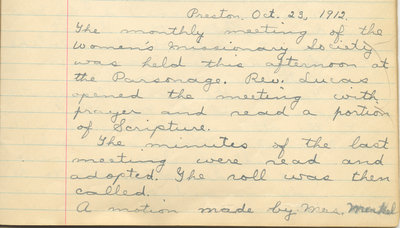 Preston. Oct. 23, 1912.
The monthly meeting of the
Women's Missionary Society
was held this afternoon at
the Parsonage. Rev. Lucas
opened the meeting with
prayer and read a portion
of Scripture.
The minutes of the last
meeting were read and
adopted. The roll was then
called.
A motion made by Mrs.